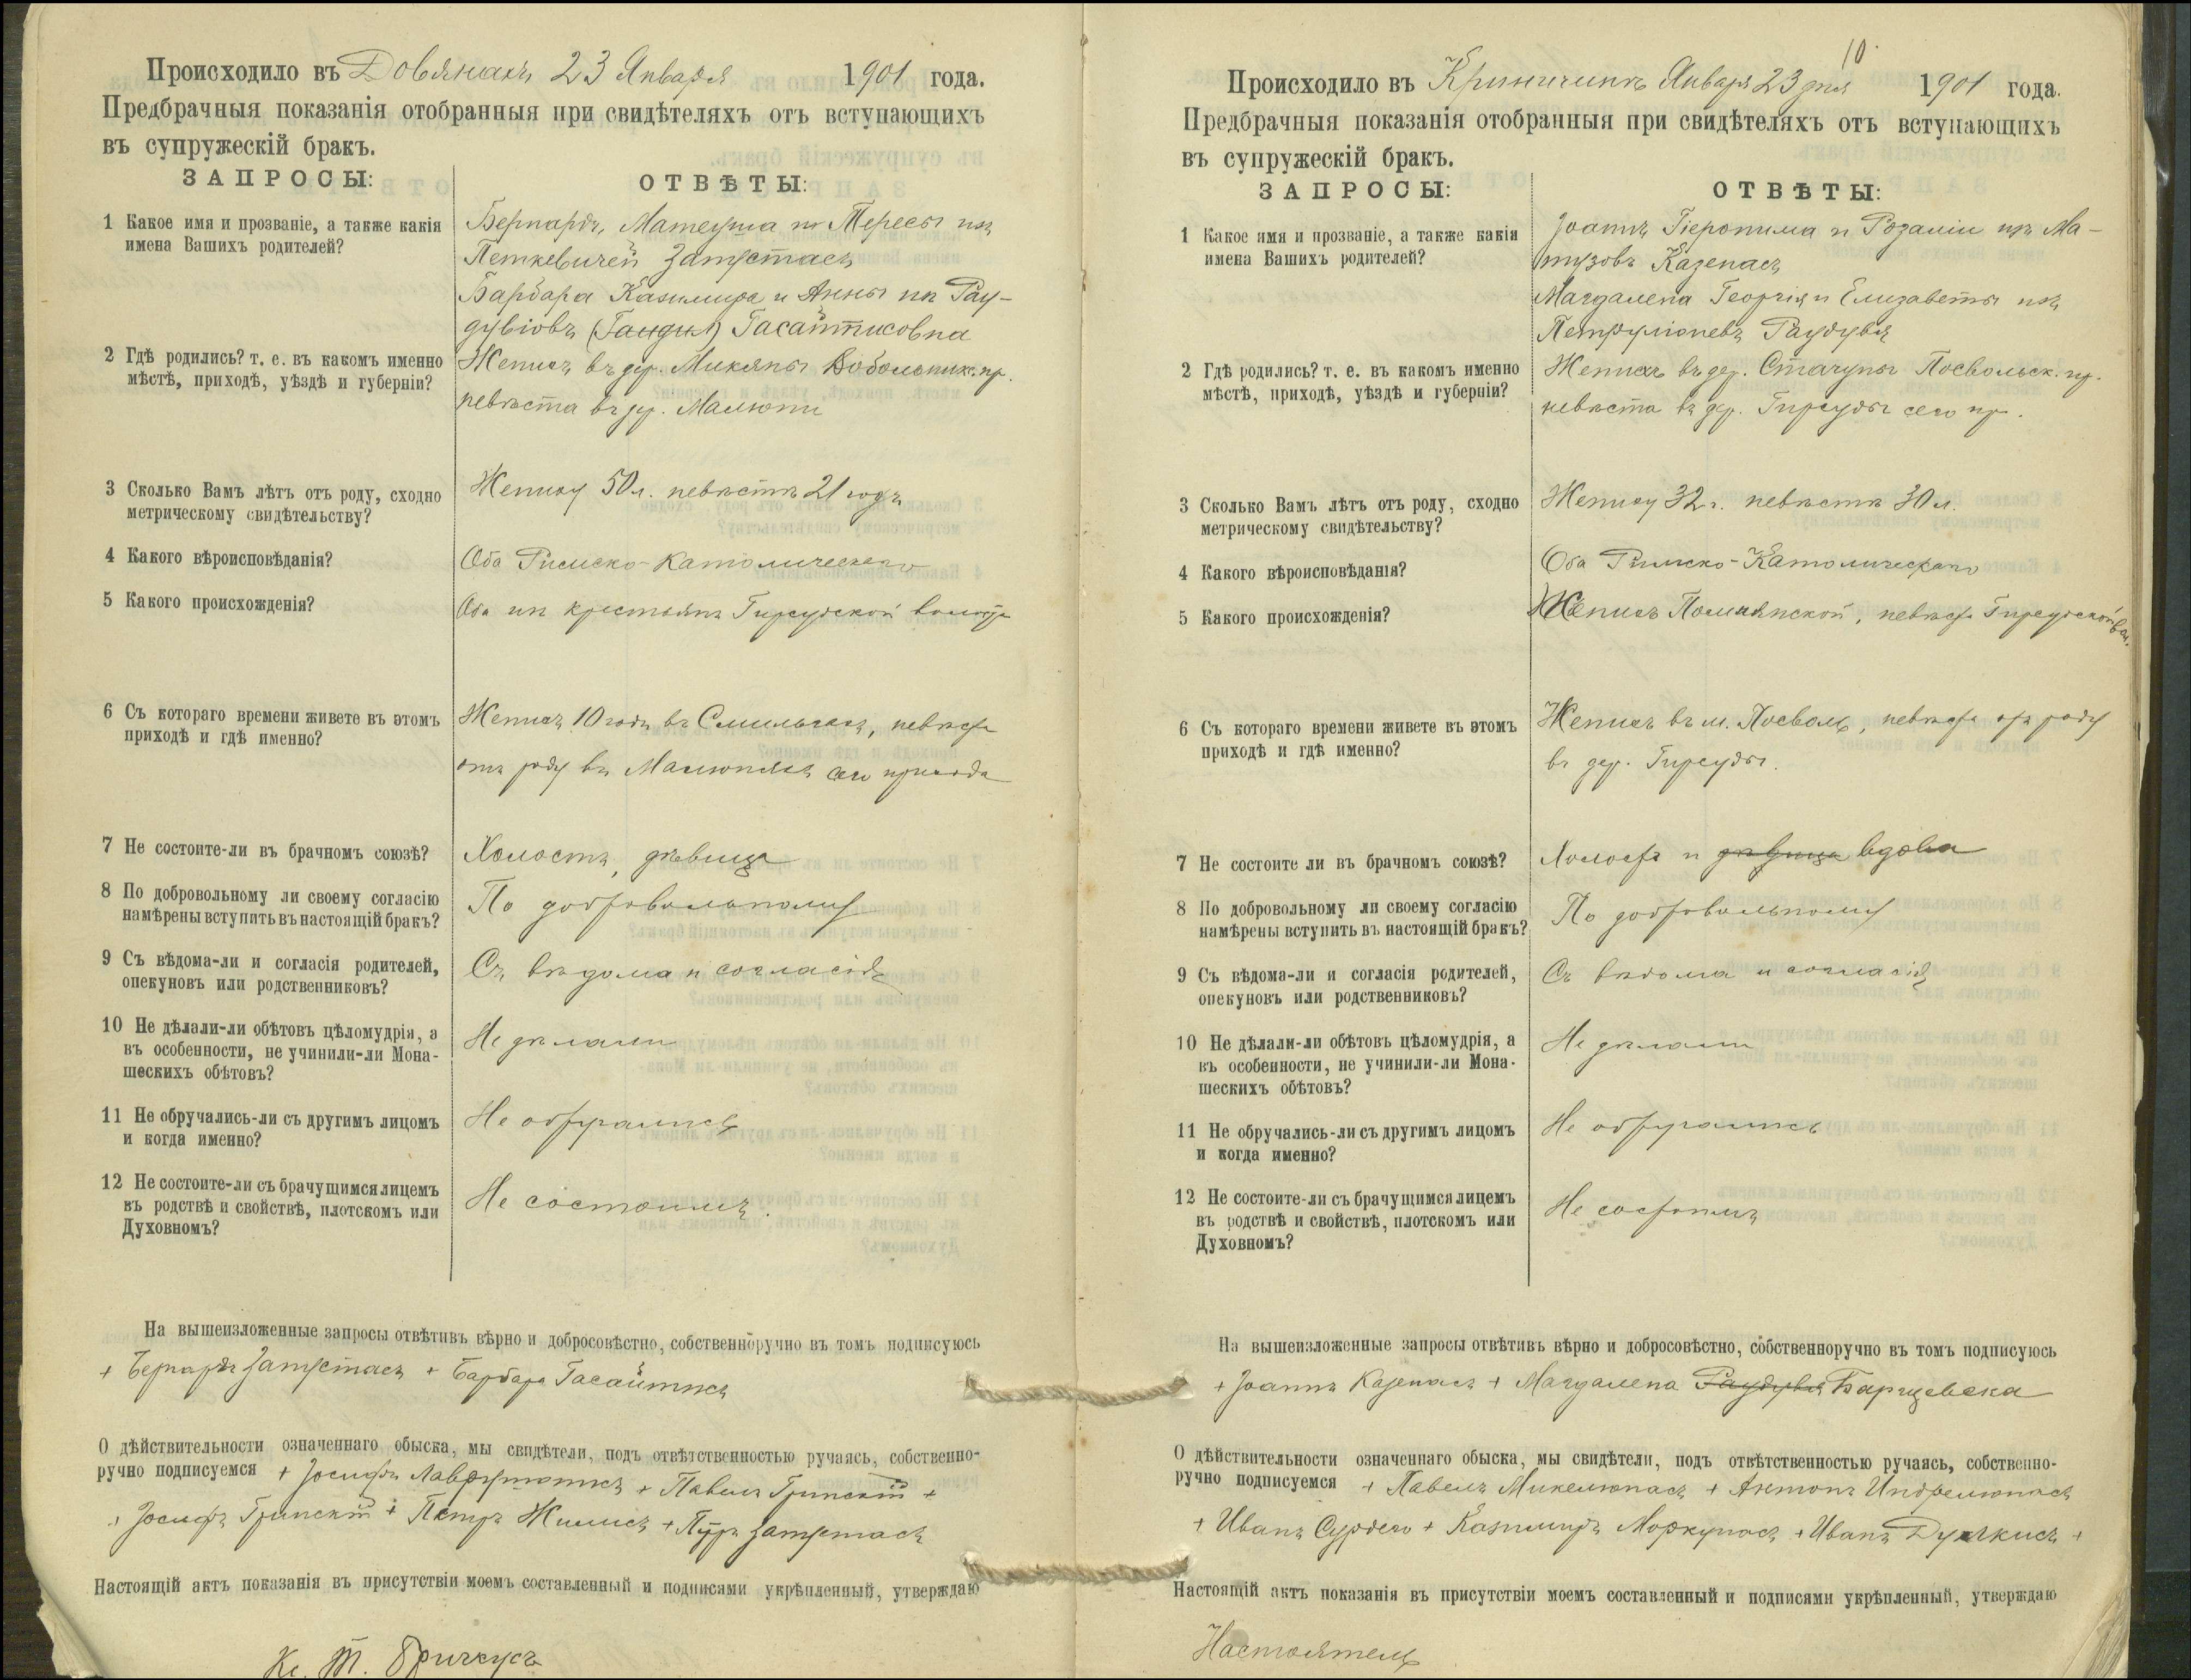 Происходило въ Довянахъ 23 Января 1901 года.
Предбрачныя показанія отобранныя при свидѣтеляхъ отъ вступающихъ
въ супружескій бракъ.
ЗАПРОСЫ: ОТВѢТЫ:
1 Какое имя и прозваніе, а также какія
имена Вашихъ родителей?
Бернардъ, Матеуша и Тересы изъ
Петкевичей Затустасъ
Барбара Казимира и Анны изъ Рау-
дувіовъ Гасайтисовна
2 Гдѣ родились? т. е. въ какомъ именно
мѣстѣ, приходѣ, уѣздѣ и губерніи?
Женихъ въ дер. Микяны Вобольник. пр.
невѣста въ дер. Малюпи
3 Сколько Вамъ лѣтъ отъ роду, сходно
метрическому свидѣтельству?
Жениху 50 л. невѣстѣ 21 годъ
4 Какого вѣроисповѣданія?
Оба Римско-Католическаго
5 Какого происхожденія?
Оба изъ крестьянъ Гирсудской волости
6 Съ котораго времени живете въ этомъ
приходѣ и гдѣ именно?
Женихъ 10 годъ въ Смильгяхъ, невѣста
отъ роду въ Малюпяхъ сего прихода
7 Не состоите-ли въ брачномъ союзѣ?
Холостъ, дѣвица
8 По добровольному ли своему согласію
намѣрены вступить въ настоящій бракъ?
По добровольному
9 Съ вѣдома-ли и согласія родителей,
опекуновъ или родственниковъ?
Съ вѣдома и согласія
10 Не дѣлали-ли обѣтовъ цѣломудрія, а
въ особенности, не учинили-ли Мона-
шескихъ обѣтовъ?
Не дѣлали
11 Не обручались-ли съ другимъ лицомъ
и когда именно?
Не обручались
12 Не состоите-ли съ брачущимся лицемъ
въ родствѣ и свойствѣ, плотскомъ или
Духовномъ?
Не состоимъ.
На вышеизложенные запросы отвѣтивъ вѣрно и добросовѣстно, собственноручно въ томъ подписуюсь
+ Бернардъ Затустасъ + Барбара Гасайтисъ
О дѣйствительности означеннаго обыска, мы свидѣтели, подъ отвѣтственностью ручаясь, собственно-
ручно подписуемся + Іосифъ + Павелъ Гринскій +
+ Іосифъ Гринскій + Петръ Жилисъ + Затустасъ
Настоящій актъ показанія въ присутствіи моемъ составленный и подписами укрѣпленный, утверждаю
Кс. Т. Бричкусъ
10.
Происходило въ Криничинѣ Января 23 дня 1901 года.
Предбрачныя показанія отобранныя при свидѣтеляхъ отъ вступающихъ
въ супружескій бракъ.
ЗАПРОСЫ: ОТВѢТЫ:
1 Какое имя и прозваніе, а также какія
имена Вашихъ родителей?
Іоаннъ Гіеронима и Розаліи изъ Ма-
тузовъ Казенасъ
Магдалена Георгія и Елизаветы изъ
Петрулюневъ Раудувя
2 Гдѣ родились? т. е. въ какомъ именно
мѣстѣ, приходѣ, уѣздѣ и губерніи?
Женихъ въ дер. Стачуны Посвольск. пр.
невѣста въ дер. Гирсуды сего пр.
3 Сколько Вамъ лѣтъ отъ роду, сходно
метрическому свидѣтельству?
Жениху 32 г. невѣстѣ 30 л.
4 Какого вѣроисповѣданія?
Оба Римско-Католическаго
5 Какого происхожденія?
Женихъ Помнянской, невѣста Гирсудской вол.
6 Съ котораго времени живете въ этомъ
приходѣ и гдѣ именно?
Женихъ въ м. Посволь, невѣста отъ роду
въ дер. Гирсуды.
7 Не состоите ли въ брачномъ союзѣ?
Холостъ и дѣвица вдова
8 По добровольному ли своему согласію
намѣрены вступить въ настоящій бракъ?
По добровольному
9 Съ вѣдома-ли и согласія родителей,
опекуновъ или родственниковъ?
Съ вѣдома и согласія
10 Не дѣлали-ли обѣтовъ цѣломудрія, а
въ особенности, не учинили-ли Мона-
шескихъ обѣтовъ?
Не дѣлали
11 Не обручались-ли съ другимъ лицомъ
и когда именно?
Не обручались
12 Не состоите-ли съ брачущимся лицемъ
въ родствѣ и свойствѣ, плотскомъ или
Духовномъ?
Не состоимъ
На вышеизложенные запросы отвѣтивъ вѣрно и добросовѣстно, собственноручно въ томъ подписуюсь
+ Іоаннъ Казенасъ + Магдалена Раудувя Баргцевска
О дѣйствительности означеннаго обыска, мы свидѣтели, подъ отвѣтственностью ручаясь, собственно-
ручно подписуемся + Павелъ Микелюнасъ + Антонъ Индрелюнасъ
+ Иванъ Сурдего + Казимиръ Моркунасъ + Иванъ Дулькисъ +
Настоящій актъ показанія въ присутствіи моемъ составленный и подписями укрѣпленный, утверждаю
Настоятель